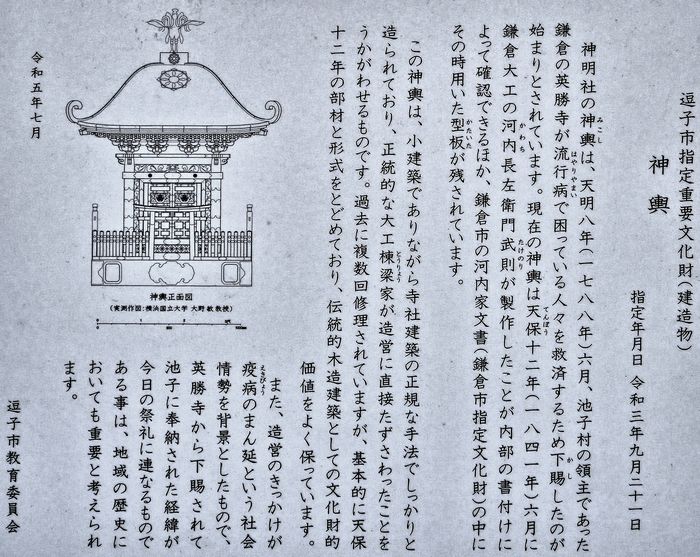 逗子市指定重要文化財(建造物)
神輿
指定年月日 令和三年九月二十一日
神明社の神輿は、天明八年(一七八八年)六月、池子村の領主であった
鎌倉の英勝寺が流行病で困っている人々を救済するため下賜したのが
始まりとされています。現在の神輿は天保十二年(一八四一年)六月に
鎌倉大工の河内長左衛門武則が製作したことが内部の書付けに
よって確認できるほか、鎌倉市の河内家文書(鎌倉市指定文化財)の中に
その時用いた型板が残されています。
この神輿は、小建築でありながら寺社建築の正規な手法でしっかりと
造られており、正統的な大工棟梁家が造営に直接たずさわったことを
うかがわせるものです。過去に複数回修理されていますが、基本的に天保
十二年の部材と形式をとどめており、伝統的木造建築としての文化財的
価値をよく保っています。
また、造営のきっかけが
疫病のまん延という社会
情勢を背景としたもので、
英勝寺から下賜されて
池子に奉納された経緯が
今日の祭礼に連なるもので
ある事は、地域の歴史に
おいても重要と考えられ
ます。
逗子市教育委員会
令和五年七月
神輿正面図
(実測作図:横浜国立大学 大野 敏 教授)
みこし
はやりやまい
かし
てんぽう
かわち
たけのり
かたいた
とうりょう
えきびょう